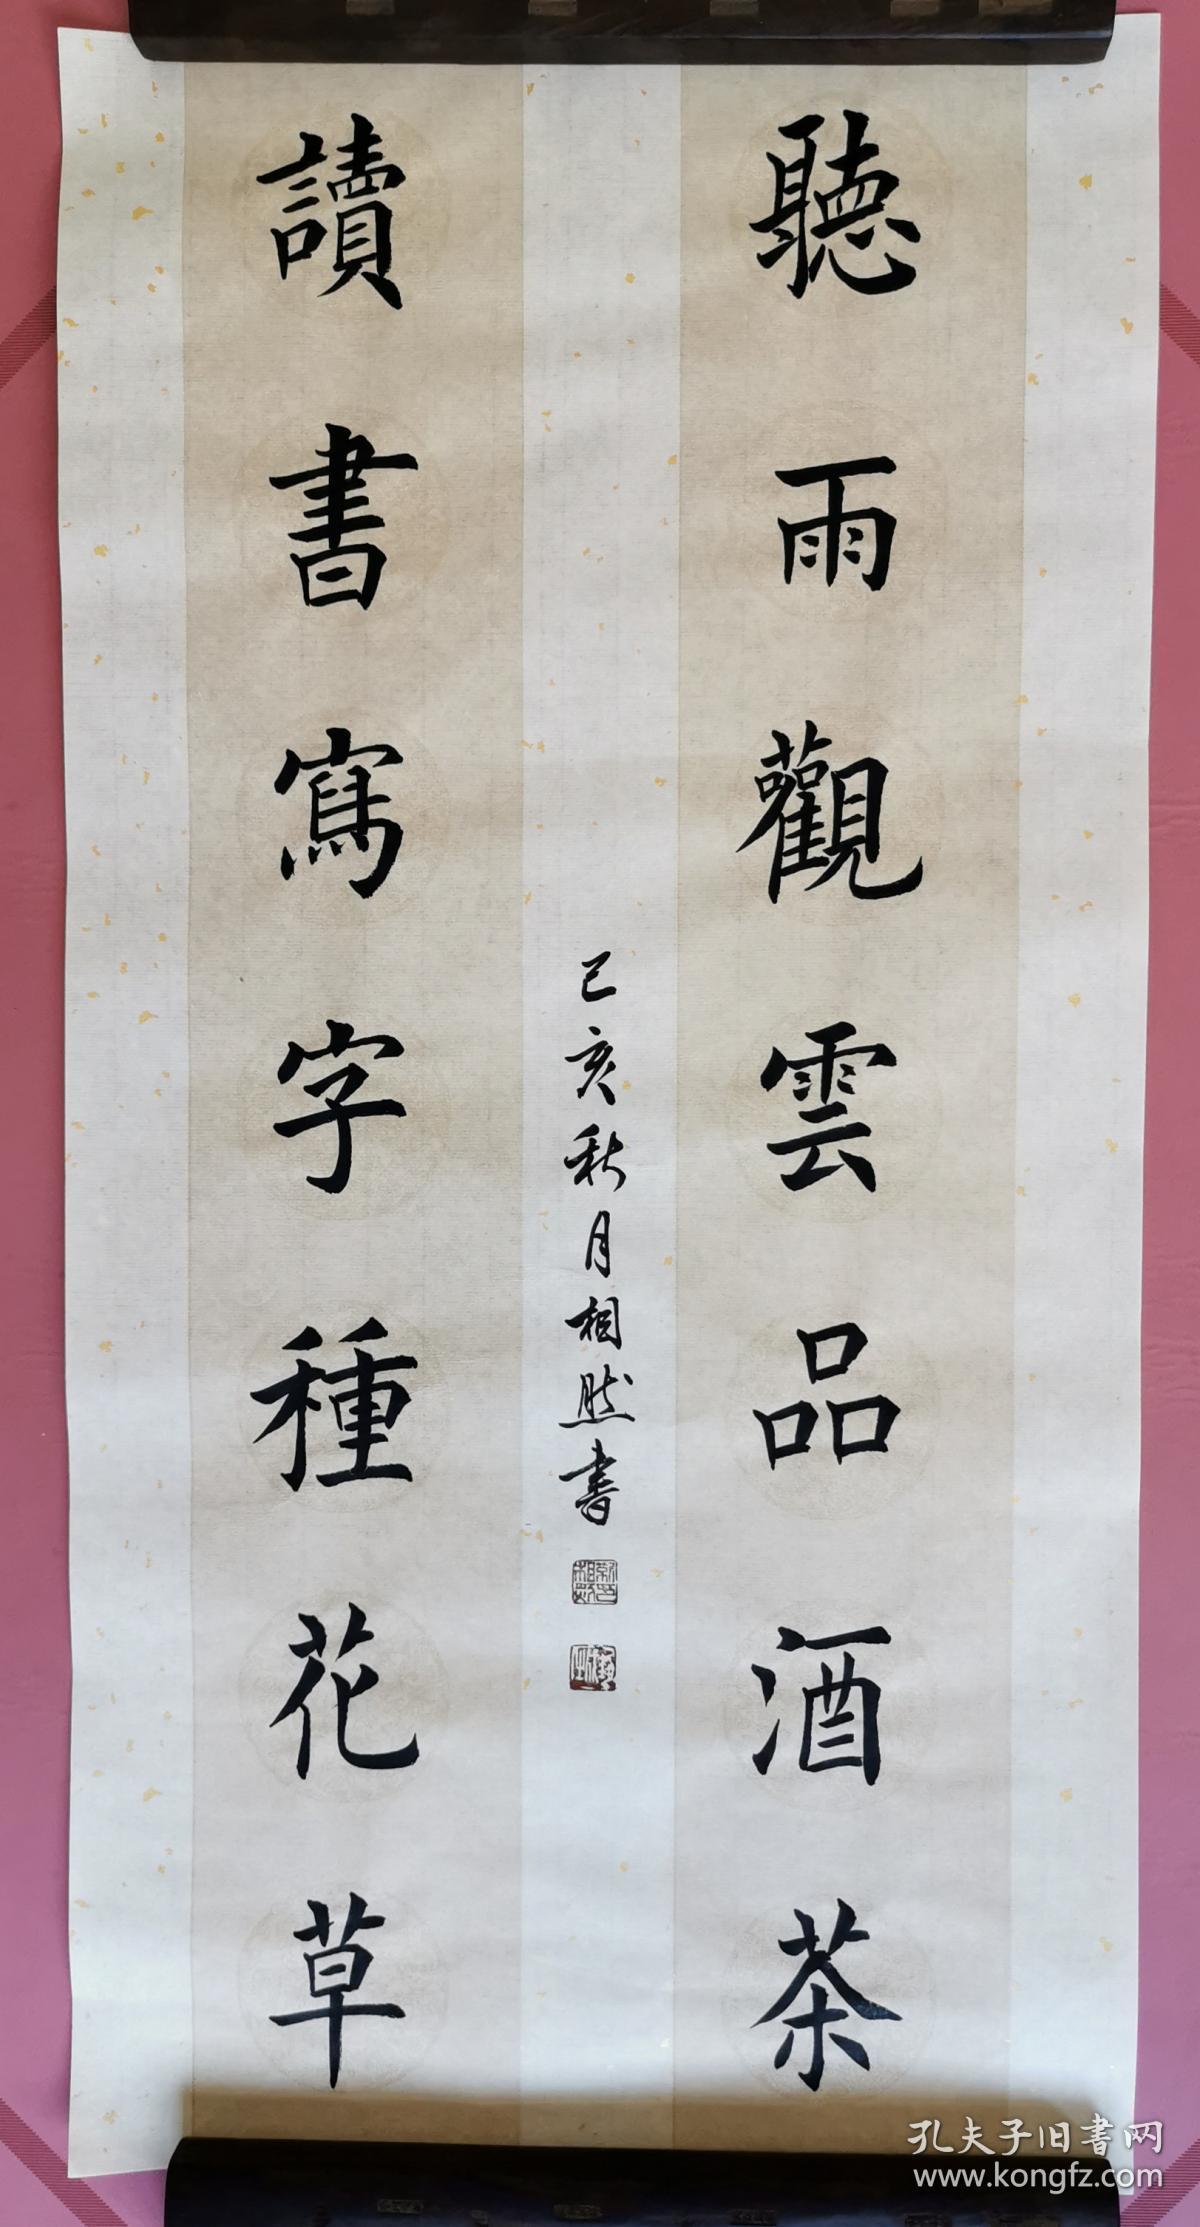 聽雨觀雲品酒茶
讀書寫字種花草
己亥秋月相然書
孔夫子旧書网
www.kongfz.com